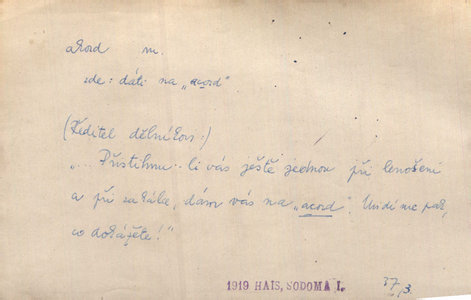 akord m.
zde: dáti na „acord“
(Ředitel dělníkům:)
„... Přistihnu-li vás ještě jednou při lenošení
a při zahálce, dám vás na „acord“. Uvidíme pak,
co dokážete!“
1919 HAIS, SODOMA I.
37
3.